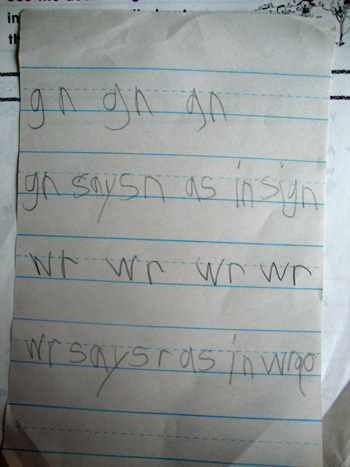 gn gn gn
gn says n as in sign
wr wr wr wr
wr says r as in wrap